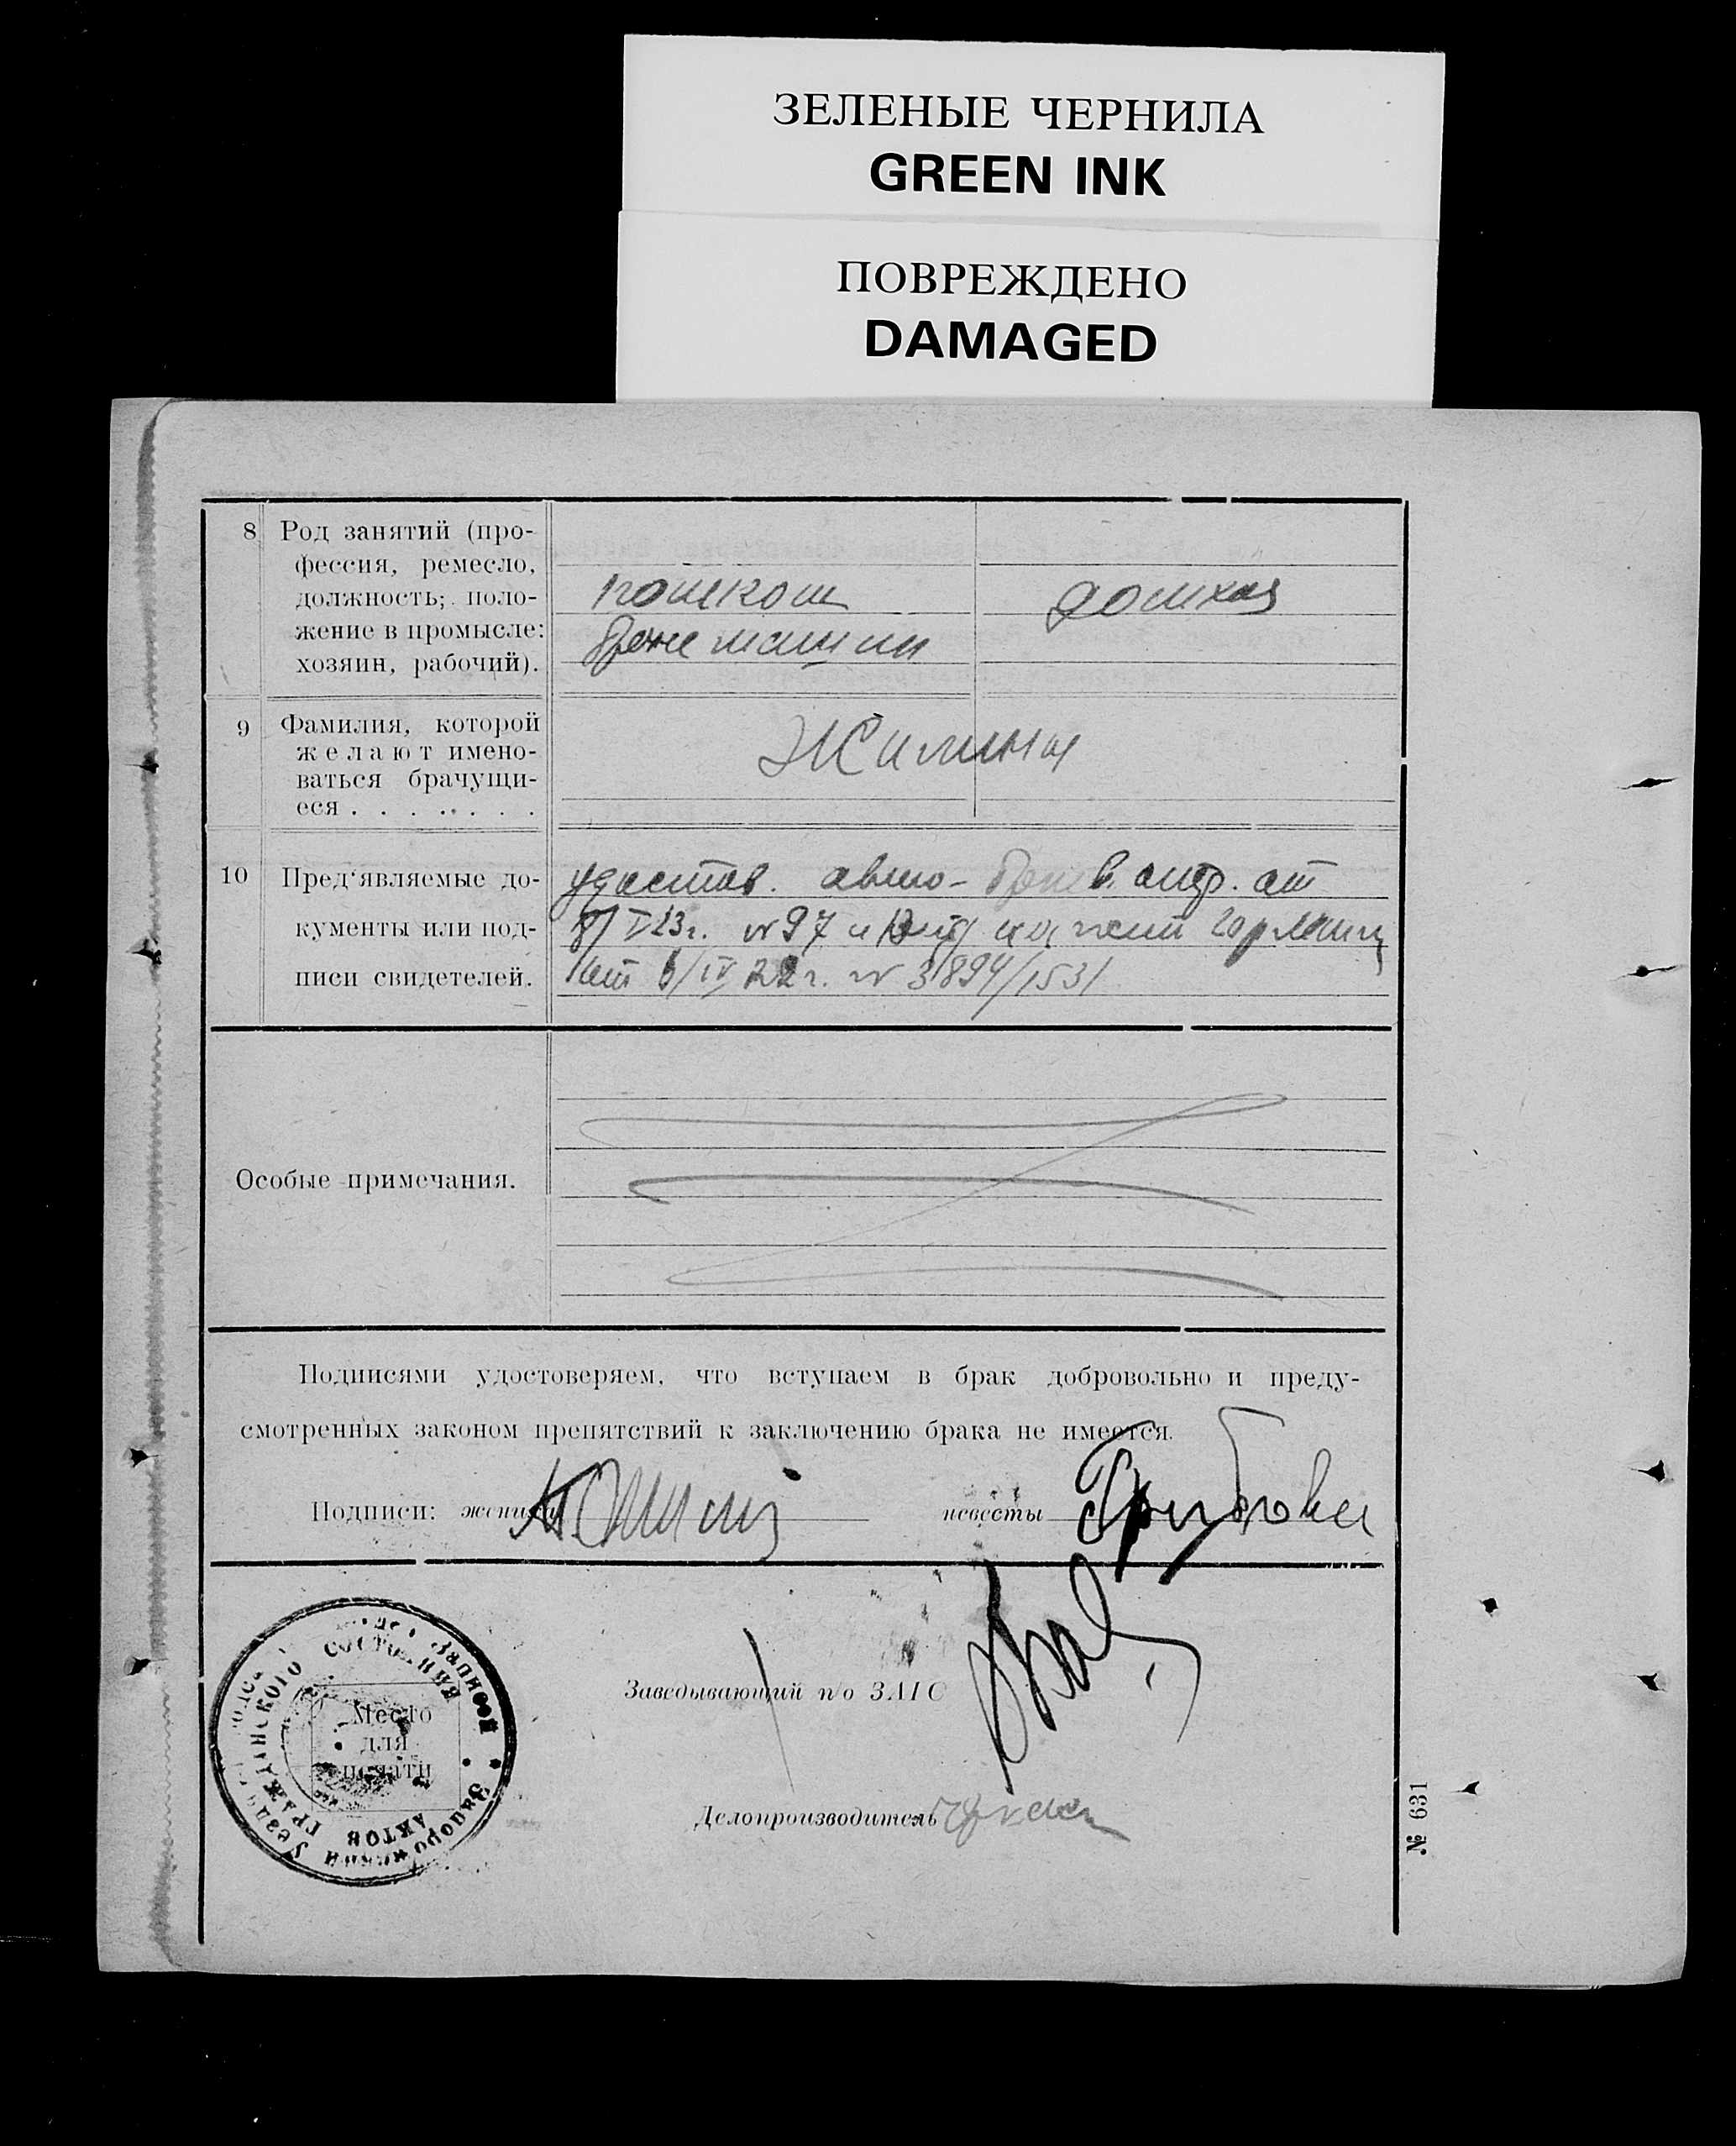 ЗЕЛЕНЫЕ ЧЕРНИЛА
GREEN INK
ПОВРЕЖДЕНО
DAMAGED
8 Род занятий (про-
фессия, ремесло,
должность; поло-
жение в промысле:
хозяин, рабочий).
помком
броне машин
домхоз
9 Фамилия, которой
желают имено-
ваться брачущи-
еся . . . . . . .
Жилины
10 Пред'являемые до-
кументы или под-
писи свидетелей.
удостов. авто- броне отр. от
8/V 23г. № 97 и
от 6/IV 22г. № 3894/1531
Особые примечания.
Подписями удостоверяем, что вступаем в брак добровольно и преду-
смотренных законом препятствий к заключению брака не имеется.
Подписи: жениха
невесты Грибова
Заведывающий п/о ЗАГС
Делопроизводитель
Место
для
печати
Записей
ГРАЖДАНСКОГО СОСТОЯНИЯ
АКТОВ
№ 631